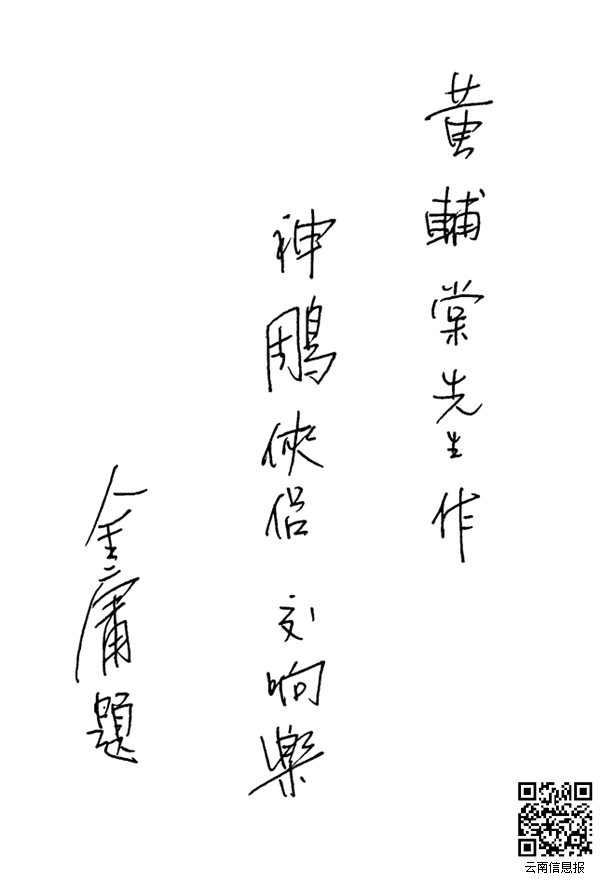 黄輔棠先生作
神鵰俠侣 交响樂
金庸題
云南信息报